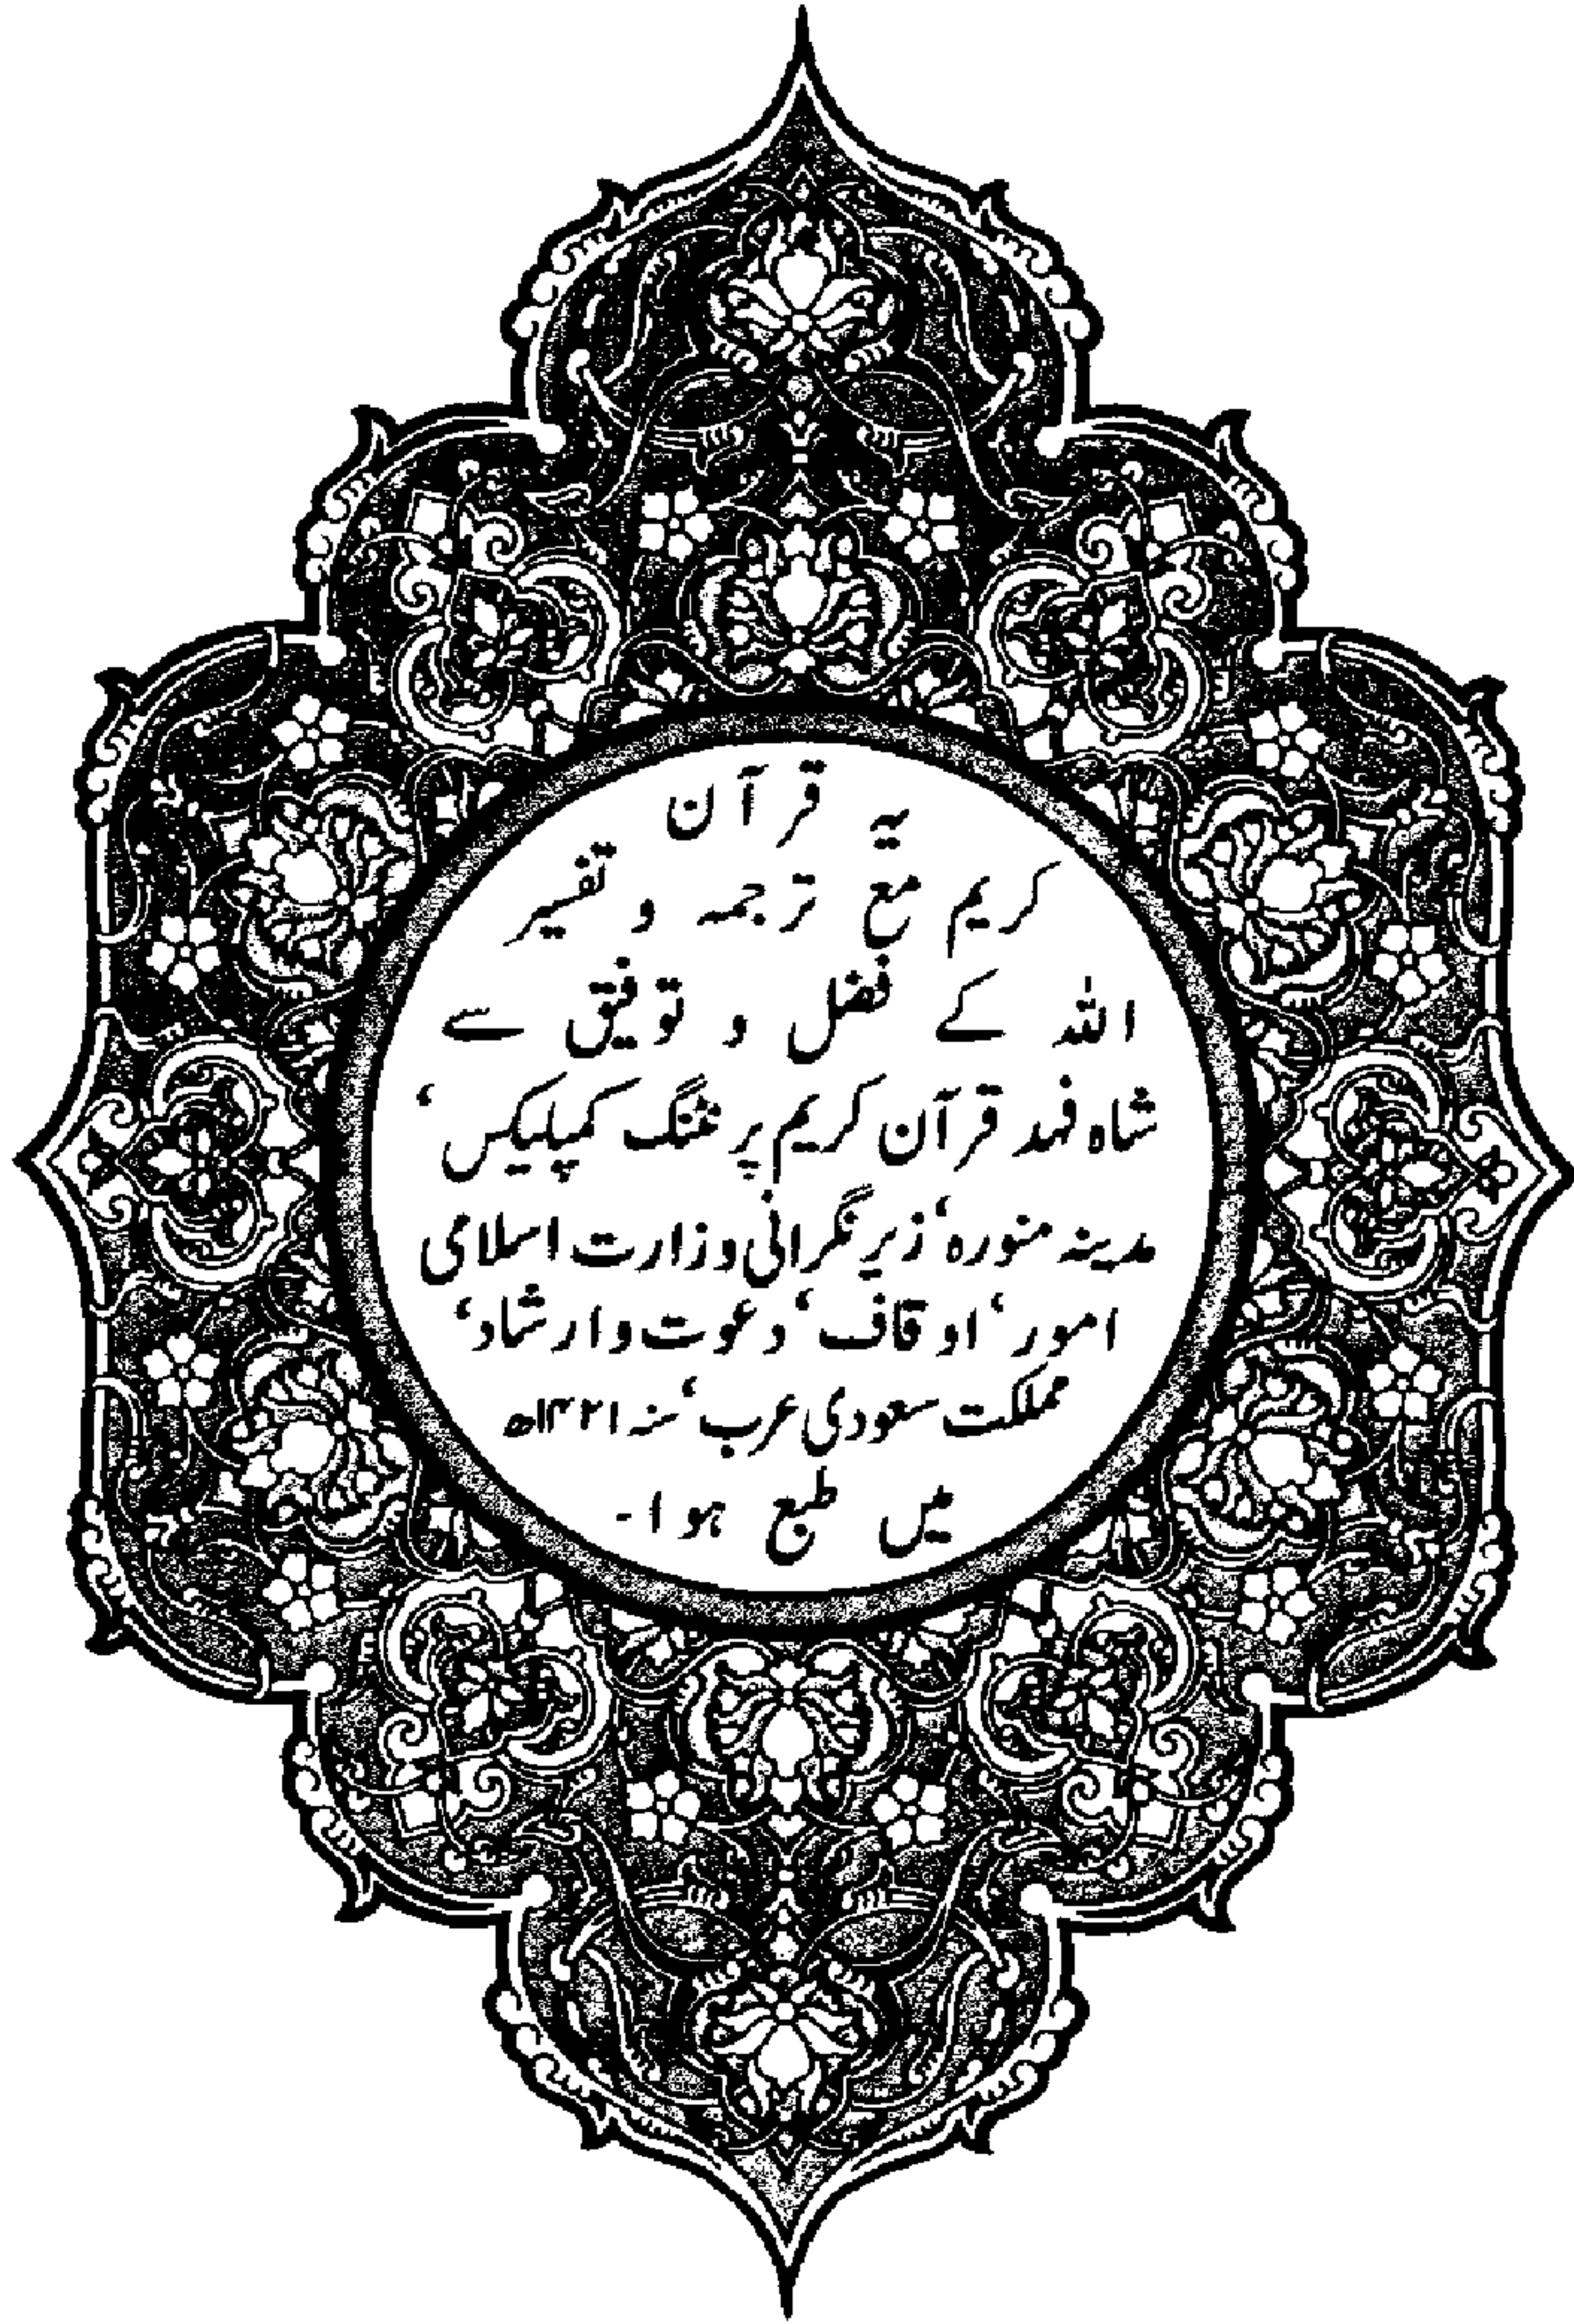 یہ قرآن
کریم مع ترجمہ و تفسیر
اللہ کے فضل و توفیق سے
شاہ فہد قرآن کریم پرنٹنگ کمپلیکس‘
مدینہ منورہ‘ زیر نگرانی وزارت اسلامی
امور‘ اوقاف‘ دعوت و ارشاد‘
مملکت سعودی عرب‘ سنہ ۱۴۲۱ھ
میں طبع ہوا۔